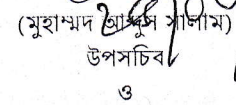 (মুহাম্মদ আব্দুস সালাম)
উপসচিব
ও